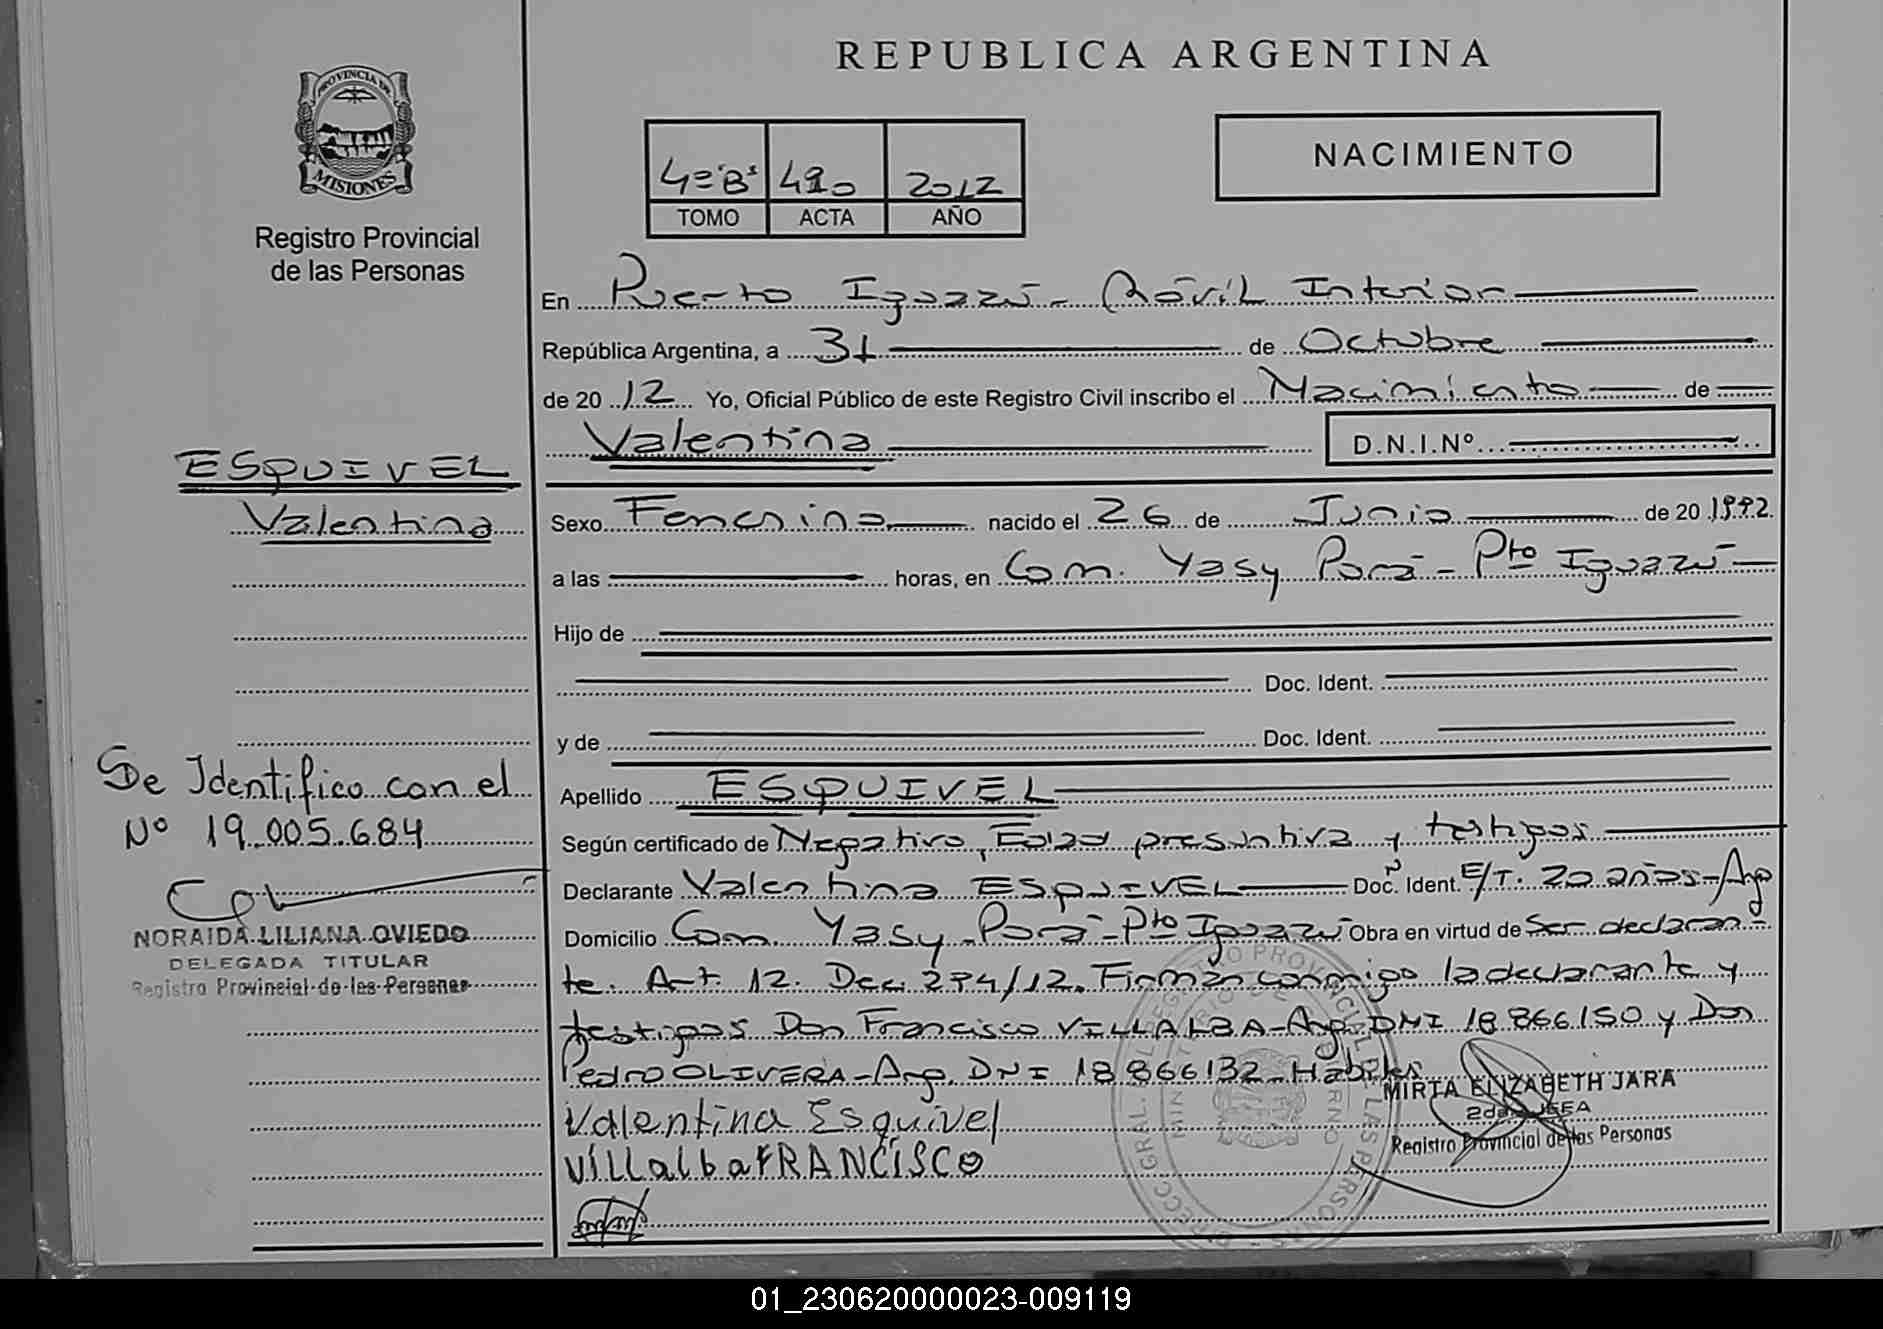 REPUBLICA ARGENTINA
PROVINCIA DE
MISIONES
Registro Provincial
de las Personas
4º "B" 420 2012
TOMO ACTA AÑO
NACIMIENTO
En Puerto Iguazú - Móvil Interior
República Argentina, a 31 de Octubre
de 2012 Yo, Oficial Público de este Registro Civil inscribo el Nacimiento de
Valentina D.N.I.Nº
ESQUIVEL
Valentina
Sexo Femenino nacido el 26 de Junio de 20 1992.
a las horas, en Com. Yasy Porá - Pto Iguazú
Hijo de
Doc. Ident.
y de Doc. Ident.
Apellido ESQUIVEL
Según certificado de Negativo, Edad presuntiva y testigos
Declarante Valentina ESQUIVEL Doc. Ident. E/T. 20 años - Arg
Domicilio Com. Yasy Porá - Pto Iguazú Obra en virtud de Ser declaran-
te. Art. 12. Dec. 274/12. Firman conmigo la declarante y
testigos Don Francisco VILLALBA - Arg. DNI 18 866150 y Don
Pedro OLIVERA - Arg. DNI 18 866132 - Hábiles
Valentina Esquivel
VillalbaFRANCISCO
Se Identifico con el
Nº 19.005.684
NORAIDA LILIANA OVIEDO
DELEGADA TITULAR
Registro Provincial de las Personas
MIRTA ELIZABETH JARA
2da JEFA
Registro Provincial de las Personas
01_230620000023-009119